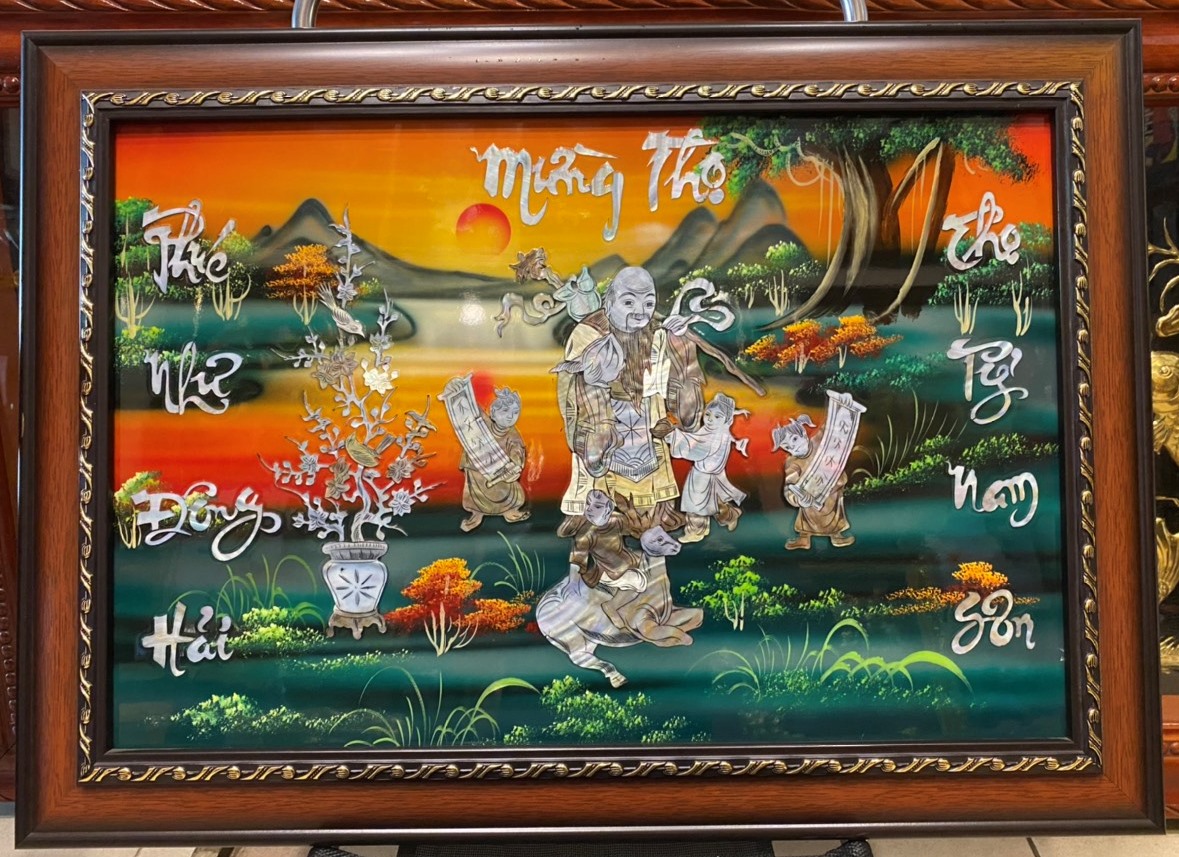 Mừng Thọ
Phúc
Như
Đông
Hải
Thọ
Tỷ
Nam
Sơn